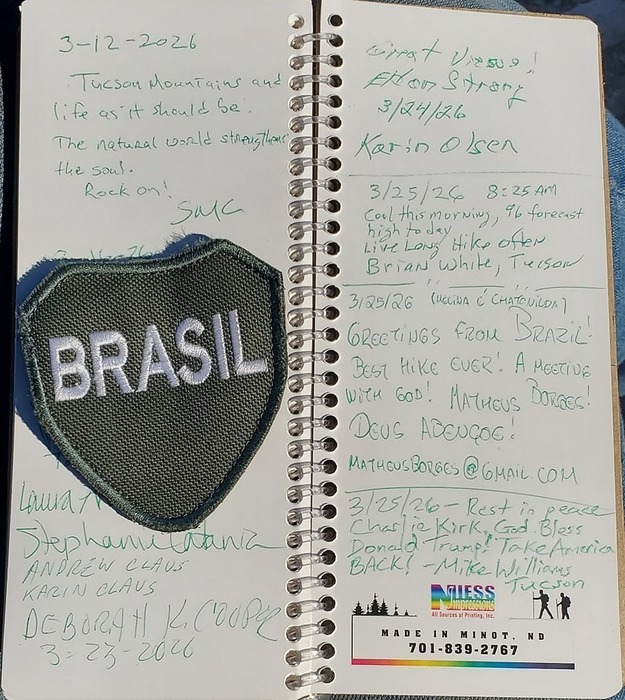 3-12-2026
Tucson Mountains and
life as it should be.
The natural world strengthens
the soul.
Rock on!
SMC
BRASIL
Laura
Stephanie Catania
ANDREW CLAUS
KARIN CLAUS
DEBORAH
3-23-2026
Great Views!
Strong
3/24/26
Karin Olsen
3/25/26 8:25 AM
Cool this morning, 96 forecast
high today
Live Long Hike often
Brian White, Tucson
3/25/26 (MELINA E CHATONILDA)
GREETINGS FROM BRAZIL!
BEST HIKE EVER! A MEETING
WITH GOD! MATHEUS BORGES!
DEUS ABENÇOE!
MATHEUSBORGES@GMAIL.COM
3/25/26 - Rest in peace
Charlie Kirk, God Bless
Donald Trump! Take America
BACK! - Mike Williams
Tucson
NESS
Impressions
All Sources of Printing, Inc.
MADE IN MINOT, ND
701-839-2767